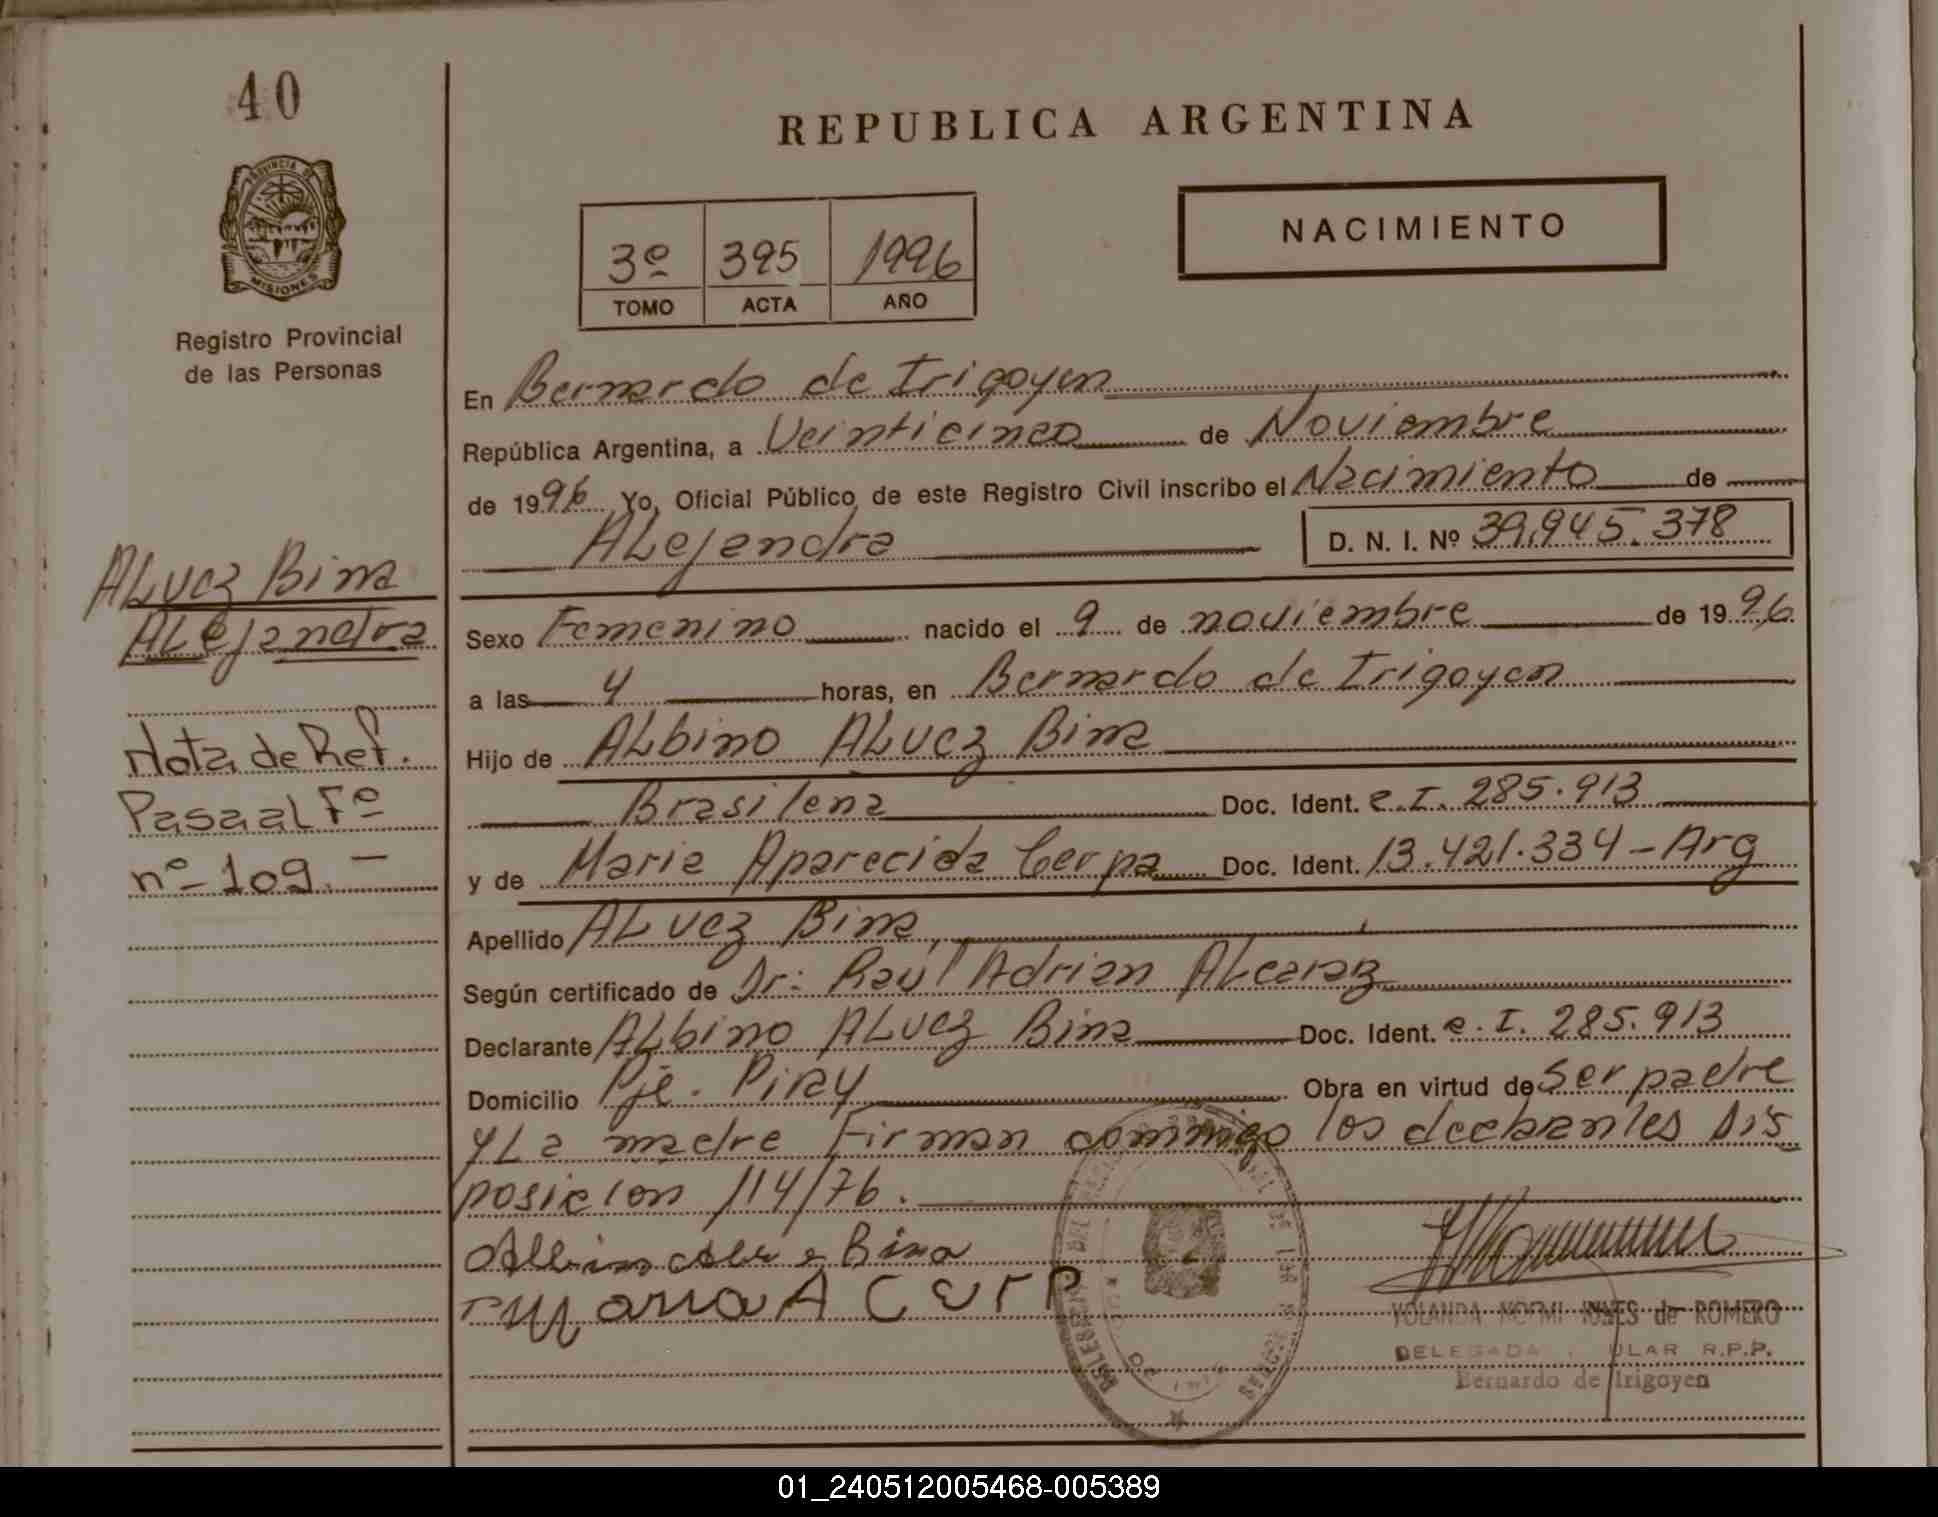 40
PROVINCIA DE
MISIONES
Registro Provincial
de las Personas
ALvez Bina
ALejandra
Nota de Ref.
Pasa al Fº
nº 109. —
REPUBLICA ARGENTINA
NACIMIENTO
3º 395 1996
TOMO ACTA AÑO
En Bernardo de Irigoyen
República Argentina, a Veinticinco de Noviembre
de 1996 Yo, Oficial Público de este Registro Civil inscribo el Nacimiento de
ALejandra D. N. I. Nº 39.945.378
Sexo Femenino nacido el 9 de noviembre de 1996
a las 4 horas, en Bernardo de Irigoyen
Hijo de ALbino ALvez Bina
Brasilena Doc. Ident. C.I. 285.913
y de Maria Aparecida Cerpa Doc. Ident. 13.421.334 - Arg
Apellido ALvez Bina
Según certificado de Dr: Raúl Adrian ALcaraz
Declarante ALbino ALvez Bina Doc. Ident. C.I. 285.913
Domicilio Pje. Piray Obra en virtud de ser padre
y La madre Firman conmigo los declarantes Dis
posición 114/76.
Albino Bina
Maria A Cerp
YOLANDA NOEMI de ROMERO
DELEGADA ULAR R.P.P.
Bernardo de Irigoyen
01_240512005468-005389